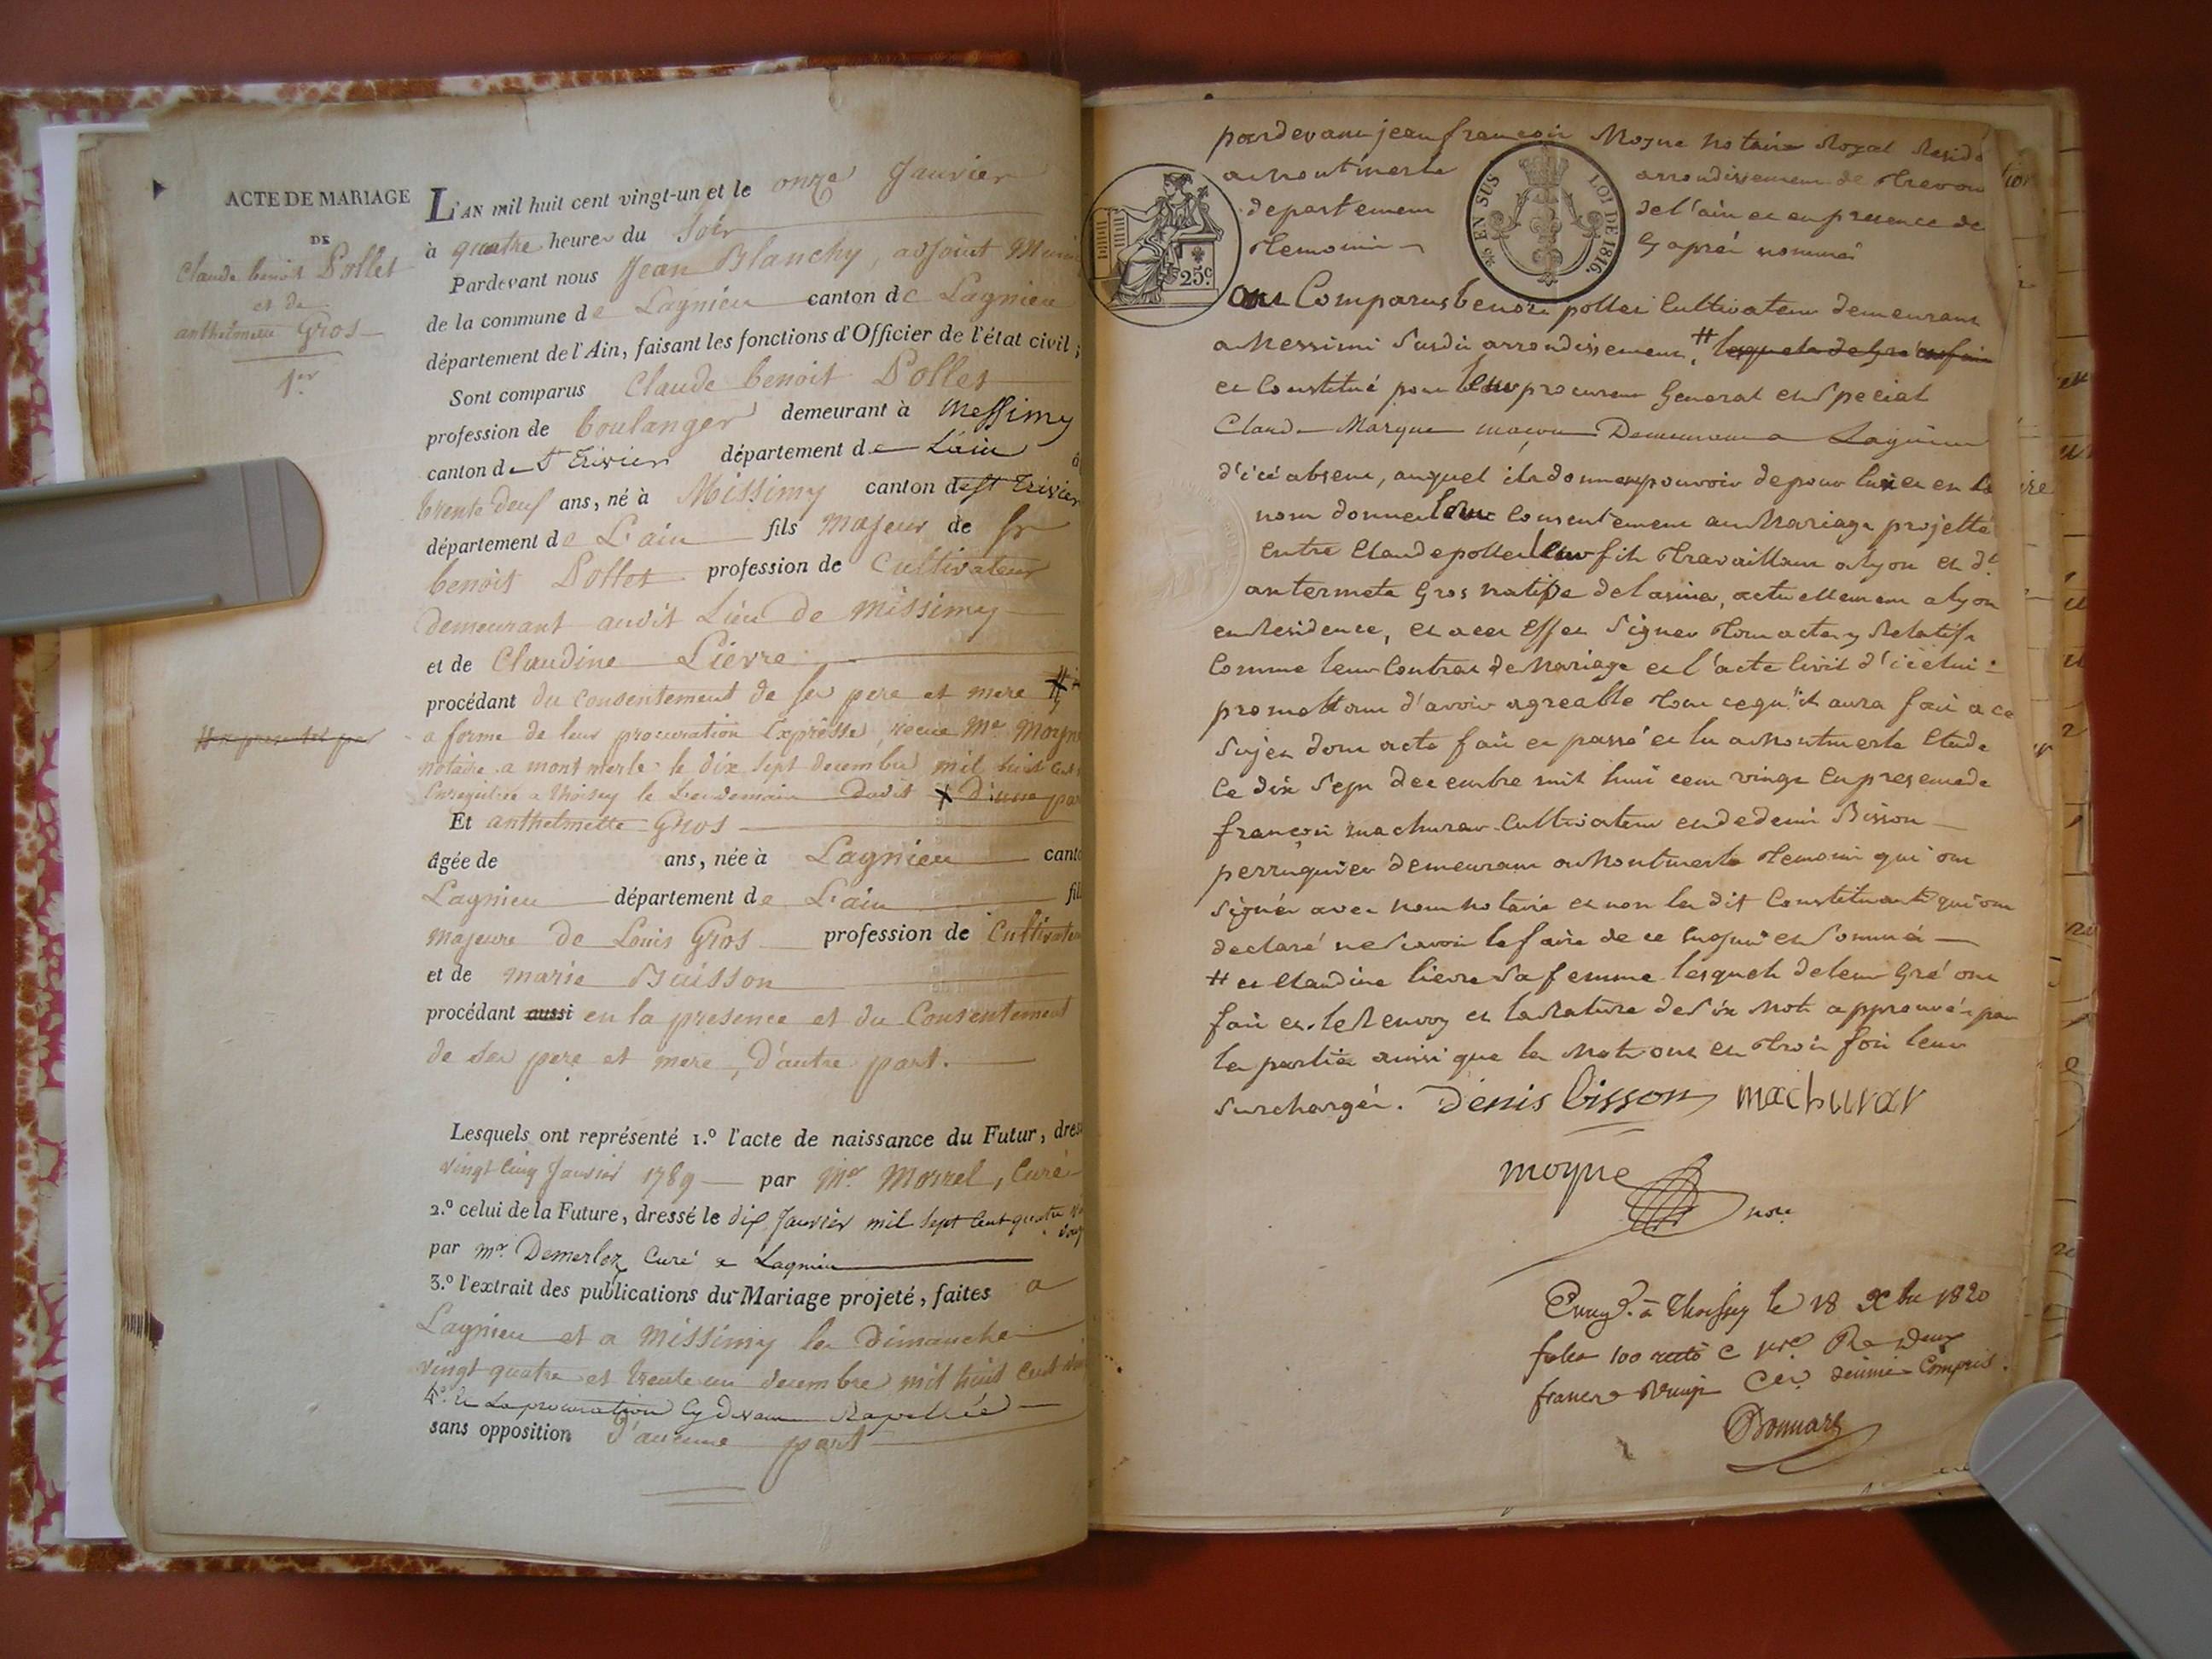 ACTE DE MARIAGE
DE
Claude benoit Pollet
et de
anthelmette Gros
1.er
L'AN mil huit cent vingt-un et le onze Janvier
à quatre heures du Soir
Pardevant nous Jean Blanchy, adjoint
de la commune de Lagnieu canton de Lagnieu
département de l'Ain, faisant les fonctions d'Officier de l'état civil;
Sont comparus Claude benoit Pollet
profession de boulanger demeurant à Messimy
canton de St Trivier département de Lain
trente deux ans, né à Missimy canton de St Trivier
département de L'ain fils majeur de Sr
benoit Pollet profession de Cultivateur
demeurant audit Lieu de Missimy
et de Claudine Lievre
procédant du consentement de ses pere et mere
a forme de leur procuration Expresse, recue Me Moyne
notaire a mont merle le dix Sept decembre mil huit cent
Enregistrée a Thoissey le Lendemain dudit d'une part
Et anthelmette Gros
âgée de ans, née à Lagnieu
Lagnieu département de L'ain
majeure de Louis Gros profession de Cultivateur
et de marie Buisson
procédant aussi en la presence et du Consentement
de ses pere et mere, d'autre part.
Lesquels ont représenté 1.º l'acte de naissance du Futur,
vingt cinq Janvier 1789 par Mr. Morrel, Curé
2.º celui de la Future, dressé le dix Janvier mil Sept Cent quatre
par mr. Demerloz Curé a Lagnieu
3.º l'extrait des publications du Mariage projeté, faites a
Lagnieu et a Missimy les Dimanche
vingt quatre et trente un decembre mil huit Cent
4.º de La procuration Cy devant Rapellée
sans opposition d'aucune part
pardevant jean françois Moyne Notaire Royal
a montmerle arrondissement de Trevoux
departement de l'ain et en presence de
temoins aprés nommés
EN SUS LOI DE 1816.
25c.
ont Comparus benoit pollet Cultivateur demeurant
a Messimi Susdit arrondissement, # lequel de Gré
et Constitué pour leur procureur General et Special
Claude Marque maçon Demeurant a Lagnieu
d'icé absent, auquel ils donnent pouvoir de pour lui et en
nom donner leur Consentement au Mariage projetté
entre Claude pollet leur fils travaillant a Lyon et de
antermete Gros native de, actuellement a Lyon
en Residence, et a cet Effet Signer tous actes y Relatifs
Comme leur Contrat de Mariage et l'acte Civil d'icelui
promettant d'avoir agreable tout ce qu'il aura fait a ce
Sujet dont acte fait et passé et lu a Montmerle Etude
Ce dix Sept decembre mil huit cent vingt en presence de
françois machurar Cultivateur et de denis Bisson
perruquier demeurant a Montmerle temoins qui ont
Signés avec nous notaire et non les dit Constituants qui ont
declaré ne Scavoir le faire de ce enquis et Sommés
# et Claudine lievre Sa femme lesquels de leur Gré ont
fait et. le Renvoy et la Rature de Six mots approuvés par
les parties ainsi que les Mots ont et trois fois leur
Surchargés. Denis bisson machurar
moyne
nore
Enreg. à Thoissey le 18 Xbre 1820
folio 100 recto C pre Re Deux
francs vingt Ces. dixime Compris.
Bonnard